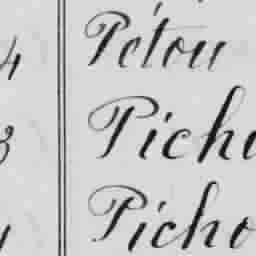 4 Pétou
3 Pich
Picho